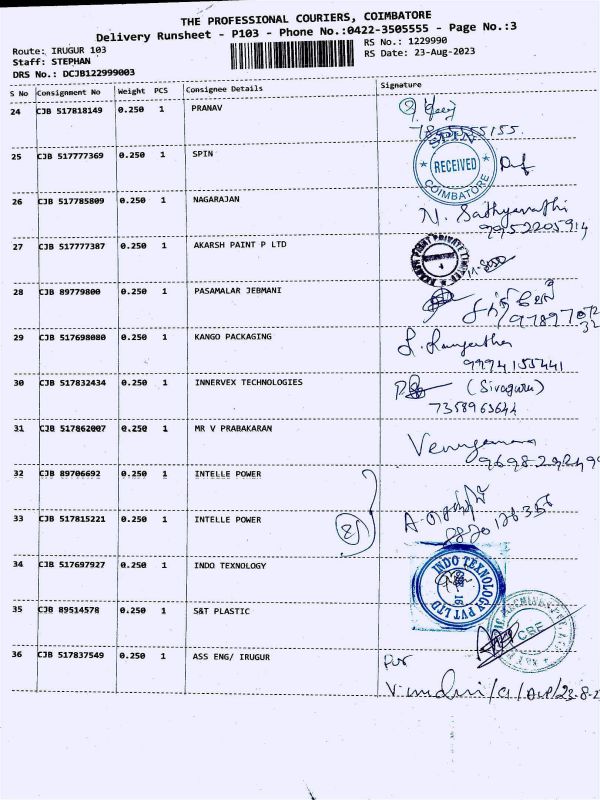 THE PROFESSIONAL COURIERS, COIMBATORE
Delivery Runsheet - P103 - Phone No.:0422-3505555 - Page No.:3
Route: IRUGUR 103
RS No.: 1229990
Staff: STEPHAN
RS Date: 23-Aug-2023
DRS No.: DCJB122999003
S No Consignment No Weight PCS Consignee Details Signature
24 CJB 517818149 0.250 1 PRANAV
25 CJB 517777369 0.250 1 SPIN
SPIN
RECEIVED
COIMBATORE
26 CJB 517785809 0.250 1 NAGARAJAN
N. Sathyavathi
9952205914
27 CJB 517777387 0.250 1 AKARSH PAINT P LTD
28 CJB 89779800 0.250 1 PASAMALAR JEBMANI
29 CJB 517698080 0.250 1 KANGO PACKAGING
9994155441
30 CJB 517832434 0.250 1 INNERVEX TECHNOLOGIES
(Sivaguru)
7358963644
31 CJB 517862007 0.250 1 MR V PRABAKARAN
32 CJB 89706692 0.250 1 INTELLE POWER
33 CJB 517815221 0.250 1 INTELLE POWER
34 CJB 517697927 0.250 1 INDO TEXNOLOGY
INDO TEXNOLOGY PVT LTD
35 CJB 89514578 0.250 1 S&T PLASTIC
CBE
36 CJB 517837549 0.250 1 ASS ENG/ IRUGUR
for